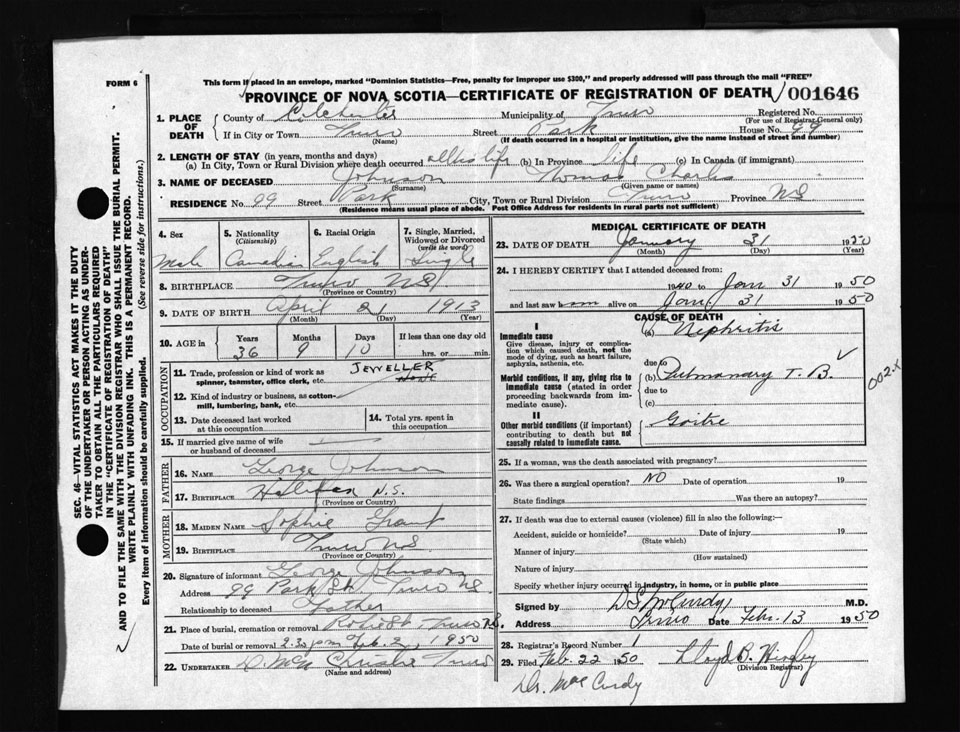 FORM 6
This form if placed in an envelope, marked "Dominion Statistics—Free, penalty for improper use $300," and properly addressed will pass through the mail "FREE"
PROVINCE OF NOVA SCOTIA—CERTIFICATE OF REGISTRATION OF DEATH 001646
SEC. 46—VITAL STATISTICS ACT MAKES IT THE DUTY
OF THE UNDERTAKER OR PERSON ACTING AS UNDER-
TAKER TO OBTAIN ALL THE PARTICULARS REQUIRED
IN THE "CERTIFICATE OF REGISTRATION OF DEATH"
AND TO FILE THE SAME WITH THE DIVISION REGISTRAR WHO SHALL ISSUE THE BURIAL PERMIT.
WRITE PLAINLY WITH UNFADING INK. THIS IS A PERMANENT RECORD.
Every item of information should be carefully supplied. (See reverse side for instructions.)
1. PLACE OF DEATH County of Colchester Municipality of Truro Registered No.
(For use of Registrar General only)
If in City or Town Truro Street Park House No. 99
(Name) (If death occurred in a hospital or institution, give the name instead of street and number)
2. LENGTH OF STAY (in years, months and days)
(a) In City, Town or Rural Division where death occurred all his life (b) In Province life (c) In Canada (if immigrant)
3. NAME OF DECEASED Johnson Thomas Charles
(Surname) (Given name or names)
RESIDENCE No. 99 Street Park City, Town or Rural Division Truro Province NS
(Residence means usual place of abode. Post Office Address for residents in rural parts not sufficient)
4. Sex Male
5. Nationality (Citizenship) Canadian
6. Racial Origin English
7. Single, Married, Widowed or Divorced (write the word) Single
8. BIRTHPLACE Truro NS
(Province or Country)
9. DATE OF BIRTH April 21 1913
(Month) (Day) (Year)
10. AGE in Years 36 Months 9 Days 10 If less than one day old
hrs. or min.
OCCUPATION
11. Trade, profession or kind of work as spinner, teamster, office clerk, etc. JEWELLER
12. Kind of industry or business, as cotton-mill, lumbering, bank, etc.
13. Date deceased last worked at this occupation
14. Total yrs. spent in this occupation
15. If married give name of wife or husband of deceased
FATHER
16. NAME George Johnson
17. BIRTHPLACE Halifax N.S.
(Province or Country)
MOTHER
18. MAIDEN NAME Sophie Grant
19. BIRTHPLACE Truro NS
(Province or Country)
20. Signature of informant George Johnson
Address 99 Park St. Truro NS.
Relationship to deceased Father
21. Place of burial, cremation or removal Robie St. Truro N.S.
Date of burial or removal 2.30 pm Feb. 2, 1950
22. UNDERTAKER Christie Truro
(Name and address)
MEDICAL CERTIFICATE OF DEATH
23. DATE OF DEATH January 31 1950
(Month) (Day)
24. I HEREBY CERTIFY that I attended deceased from:
1940 to Jan 31 1950
and last saw him alive on Jan. 31 1950
CAUSE OF DEATH
I
Immediate cause (a) Nephritis
Give disease, injury or complication which caused death, not the mode of dying, such as heart failure, asphyxia, asthenia, etc.
due to
Morbid conditions, if any, giving rise to immediate cause (stated in order proceeding backwards from immediate cause). (b) Pulmonary T.B. 002.x
due to
(c)
II
Other morbid conditions (if important) contributing to death but not causally related to immediate cause. Goitre
25. If a woman, was the death associated with pregnancy?
26. Was there a surgical operation? NO Date of operation 19
State findings Was there an autopsy?
27. If death was due to external causes (violence) fill in also the following:—
Accident, suicide or homicide? Date of injury 19
(State which)
Manner of injury
(How sustained)
Nature of injury
Specify whether injury occurred in industry, in home, or in public place
Signed by D S McCurdy M.D.
Address Truro Date Feb. 13 1950
28. Registrar's Record Number 1
29. Filed Feb. 22 1950 Lloyd B.
(Division Registrar)
Dr. MacCurdy